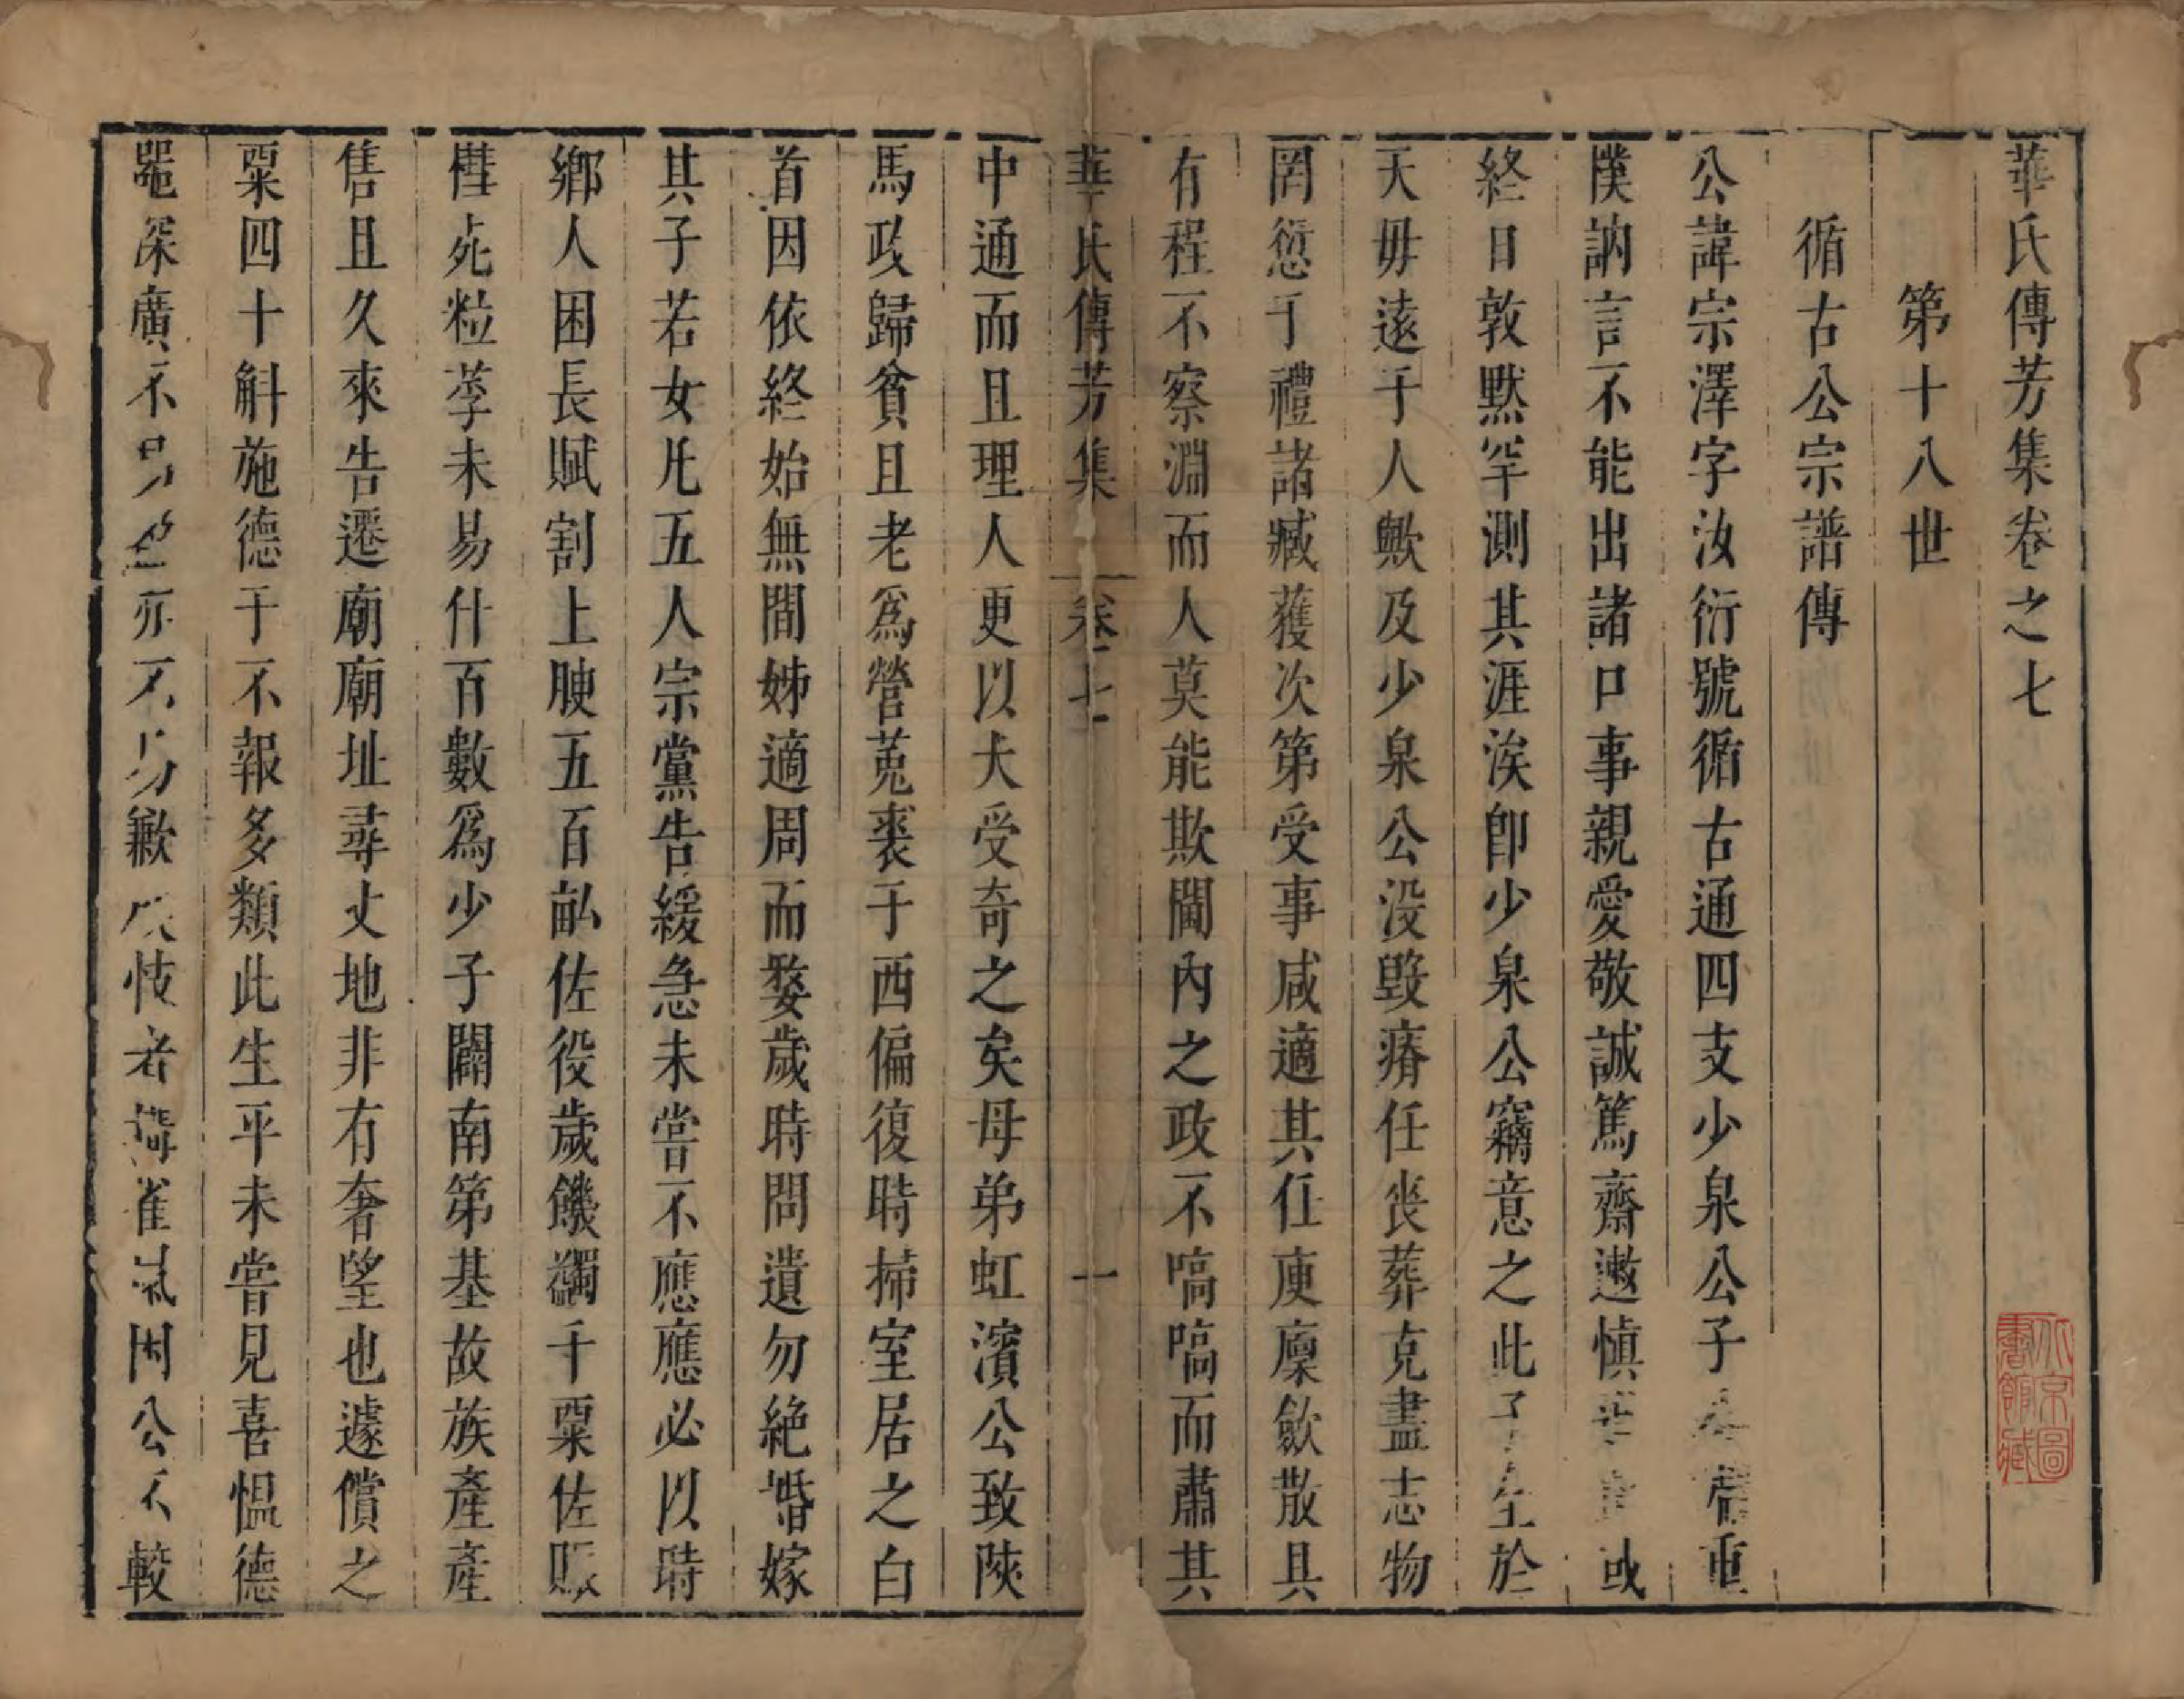 華氏傳芳集卷之七
第十八世
循古公宗譜傳
公諱宗澤字汝衍號循古通四支少泉公子 重
樸訥言不能出諸口事親愛敬誠篤齋遬愼 或
終日敦黙罕測其涯涘卽少泉公竊意之此子 於
天毋遠于人歟及少泉公没毀瘠任丧葬克盡志物
罔愆于禮諸臧獲次第受事咸適其任庾廩斂散具
有程不察淵而人莫能欺閫內之政不嗃嗃而肅其
華氏傳芳集 卷七 一
中通而且理人更以大受奇之矣母弟虹濱公致陝
馬政歸貧且老爲營菟裘于西偏復時掃室居之白
首因依終始無間姊適周而嫠歲時問遺勿絶婚嫁
其子若女凡五人宗黨告緩急未嘗不應應必以時
鄉人困長賦割上腴五百畝佐役歲饑蠲千粟佐賑
槥死粒莩未易什百數爲少子闢南第基故族產產
售且久來告遷廟廟址尋丈地非有奢望也遽償之
粟四十斛施德于不報多類此生平未嘗見喜愠德
噐深廣不 亦不 歉 忮者 雀鼠困公不較
北京圖書館藏